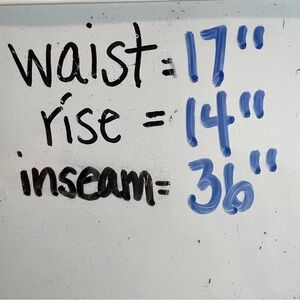 waist = 17"
rise = 14"
inseam = 36"